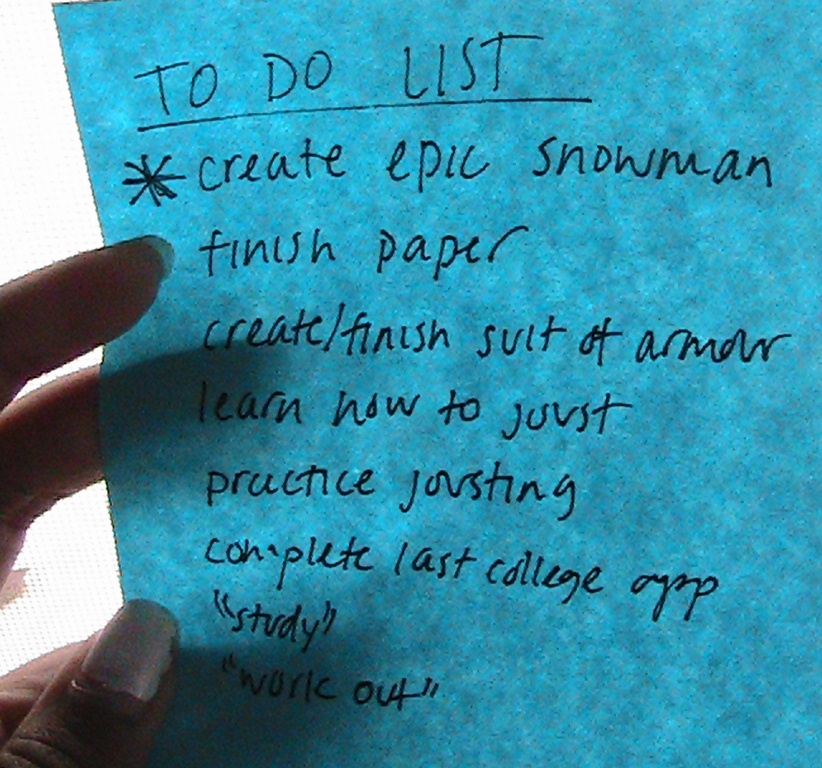 TO DO LIST
* create epic snowman
finish paper
create/finish suit of armour
learn how to joust
practice jousting
complete last college app
"study"
"work out"